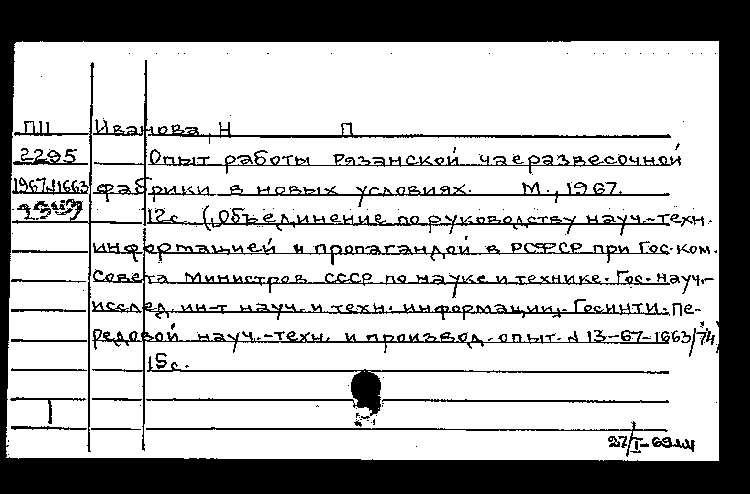 ПП Иванова, Н П
2295 Опыт работы Рязанской чаеразвесочной
1967 1663 фабрики в новых условиях. М., 1967.
12с. (Объединение по руководству науч.-техн.
информацией и пропагандой в РСФСР при Гос. ком.
Совета Министров СССР по науке и технике. Гос. науч.-
исслед. ин-т науч. и техн. информации. ГОСИНТИ. Пе-
редовой науч.-техн. и производ. опыт. N 13-67-1663/74)
15с.
1
27/I-69